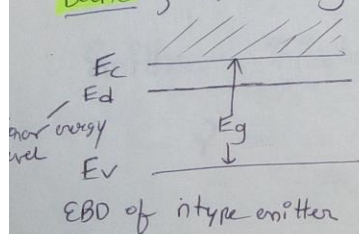 Ec
Ed
energy
Eg
Ev
EBD of ntype emitter